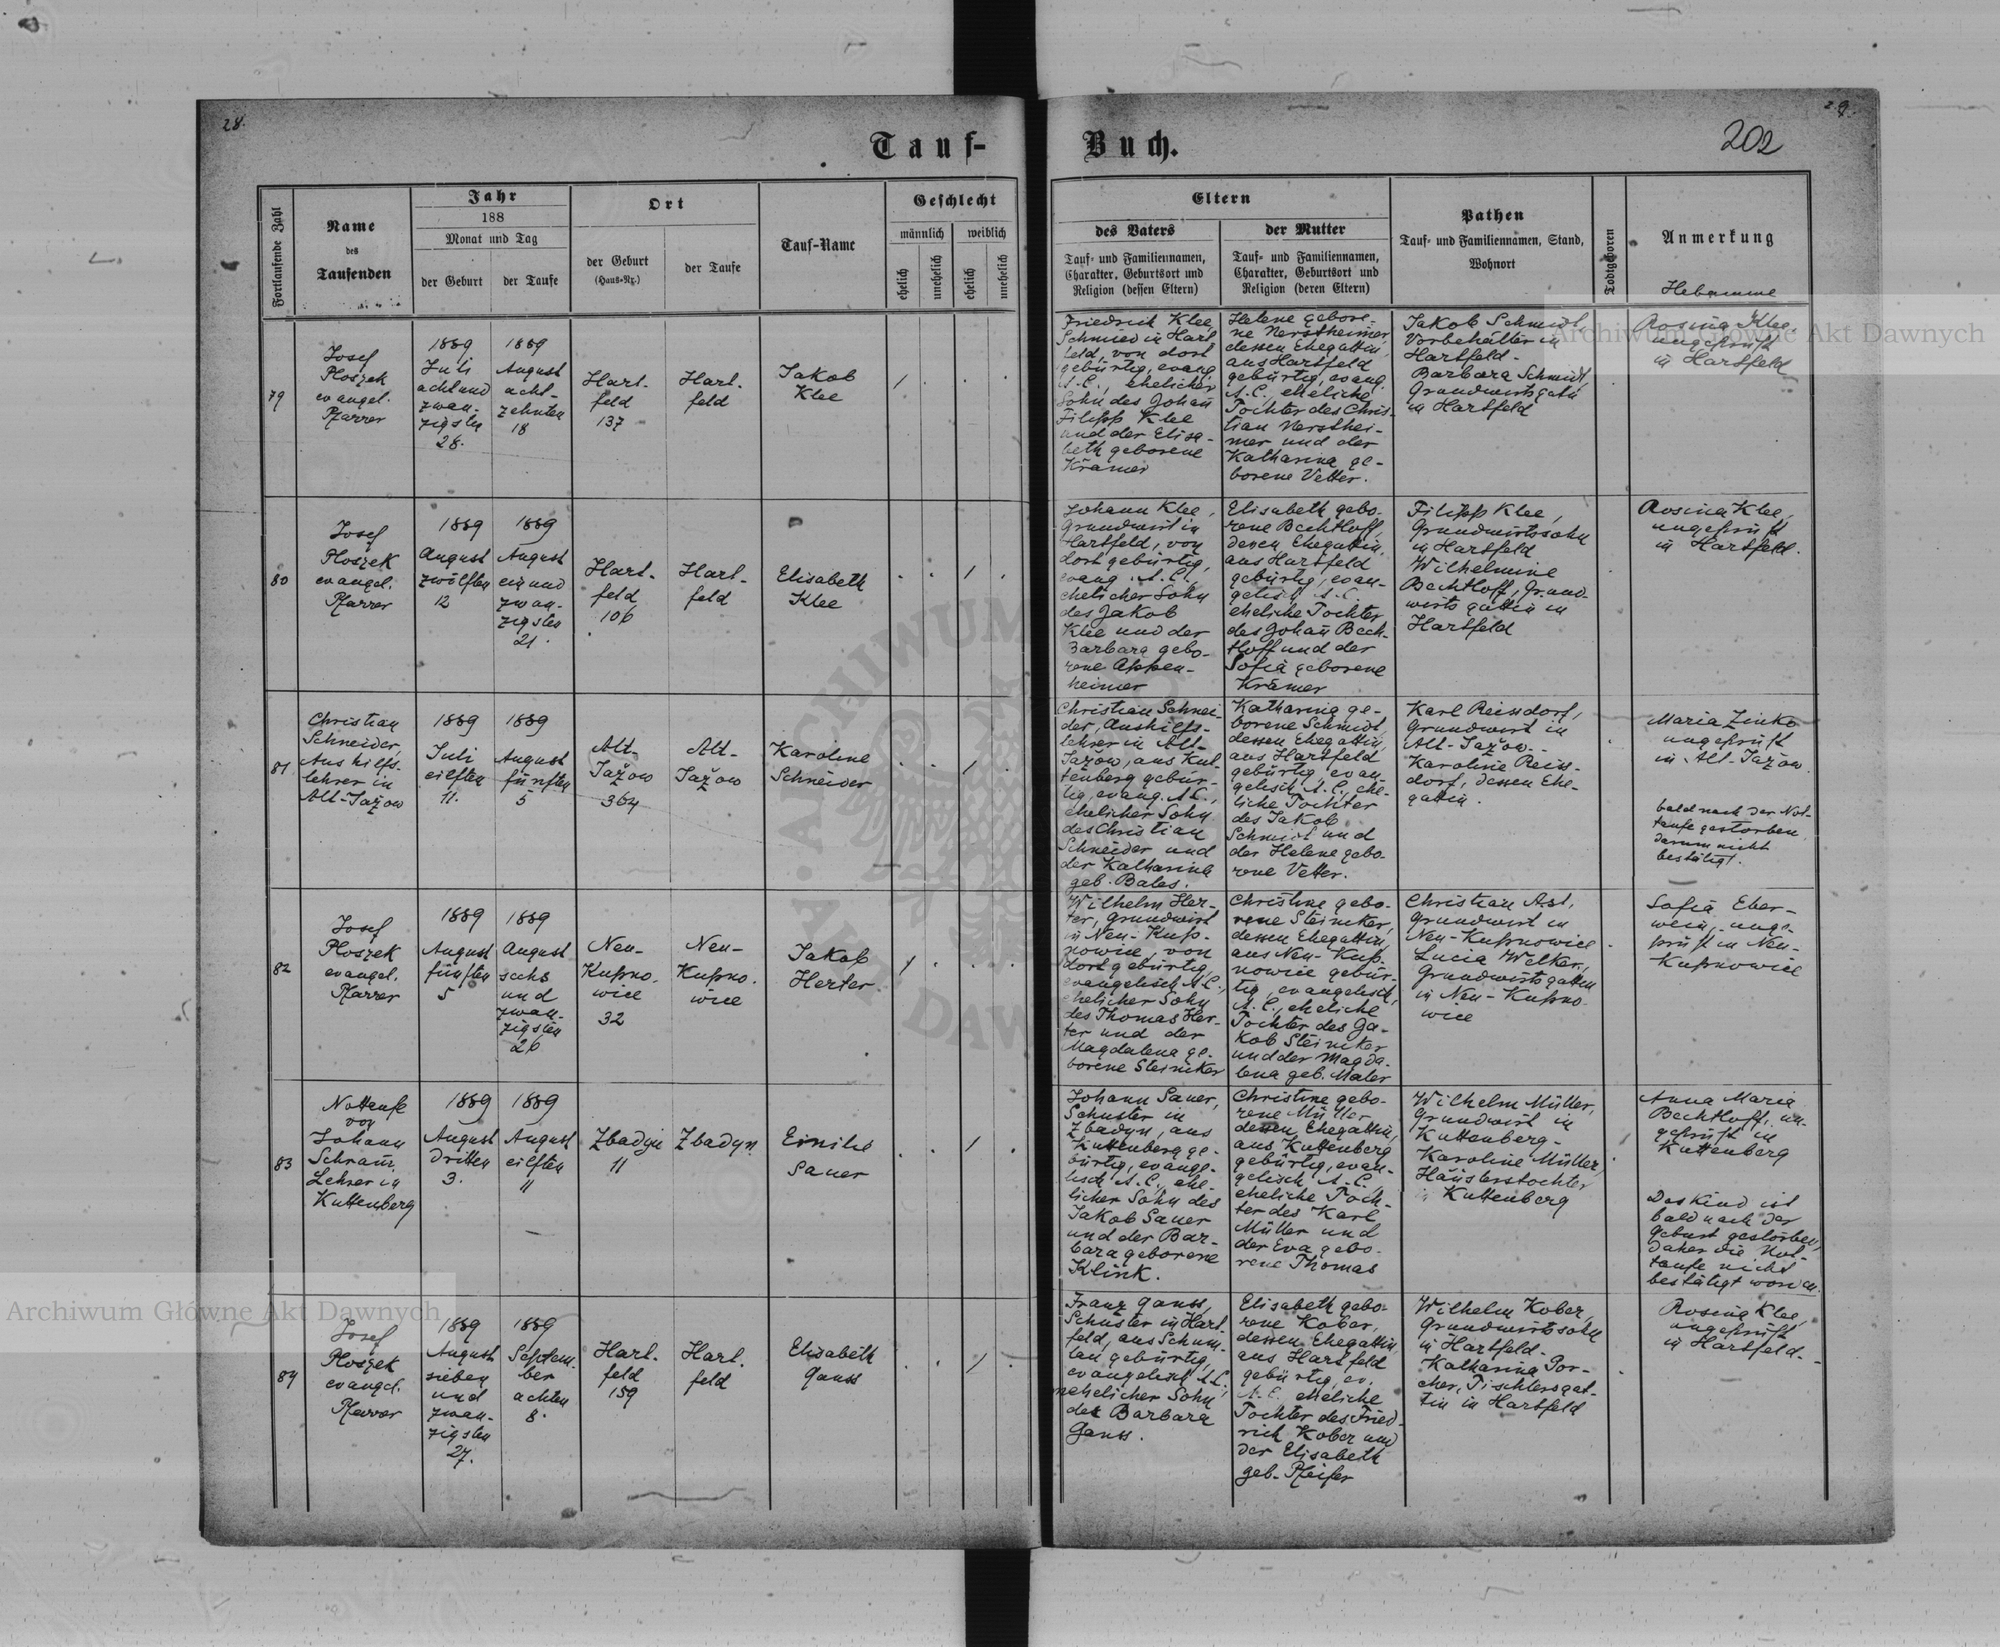 28.
29.
202
Tauf-Buch.
Fortlaufende Zahl
Name
des
Taufenden
Jahr
188
Monat und Tag
der Geburt
der Taufe
Ort
der Geburt
(Haus-Nr.)
der Taufe
Tauf-Name
Geschlecht
männlich
weiblich
ehelich
unehelich
ehelich
unehelich
Eltern
des Vaters
Tauf- und Familiennamen,
Charakter, Geburtsort und
Religion (dessen Eltern)
der Mutter
Tauf- und Familiennamen,
Charakter, Geburtsort und
Religion (deren Eltern)
Pathen
Tauf- und Familiennamen, Stand,
Wohnort
Todtgeboren
Anmerkung
Hebamme
79
Josef
Ploszek
evangel.
Pfarrer
1889
Juli
achtund
zwan-
zigsten
28.
1889
August
acht-
zehnten
18
Hart-
feld
137
Hart-
feld
Jakob
Klee
Friedrich Klee,
Schmied in Hart
feld, von dort
gebürtig, evang.
A.C., ehelicher
Sohn des Johañ
Filipp Klee
und der Elisa-
beth geborene
Krämer
Helene gebore-
ne Nerstheimer
dessen Ehegattin,
aus Hartfeld
gebürtig, evang.
A.C., eheliche
Tochter des Chris-
tian Nersthei-
mer und der
Katharina ge-
borene Vetter.
Jakob Schmidt,
Vorbehälter in
Hartfeld -
Barbara Schmidt,
Grundwirtsgatin
in Hartfeld
Rosina Klee,
ungeprüft
in Hartfeld
80
Josef
Ploszek
evangel.
Pfarrer
1889
August
zwölften
12
1889
August
ein und
zwan-
zigsten
21.
Hart-
feld
106
Hart-
feld
Elisabeth
Klee
Johann Klee,
Grundwirt in
Hartfeld, von
dort gebürtig,
evang. A.C.,
ehelicher Sohn
des Jakob
Klee und der
Barbara gebo-
rene Appen-
heimer
Elisabeth gebo-
rene Bechtloff,
dessen Ehegattin,
aus Hartfeld
gebürtig, evan-
gelisch A.C.
eheliche Tochter
des Johañ Bech-
tloff und der
Sofia geborene
Krämer
Filipp Klee,
Grundwirtssohn
in Hartfeld
Wilhelmine
Bechtloff, Grund-
wirts gattin in
Hartfeld
Rosina Klee,
ungeprüft
in Hartfeld.
81
Christian
Schneider,
Aushilfs-
lehrer in
Alt-Jažow
1889
Juli
eilften
11.
1889
August
fünften
5
Alt-
Jažow
364
Alt-
Jažow
Karoline
Schneider
Christian Schnei-
der, Aushilfs-
lehrer in Alt-
Jazow, aus Kut
tenberg gebür-
tig, evang. A.C.,
ehelicher Sohn
des Christian
Schneider und
der Katharina
geb. Bales.
Katharina ge-
borene Schmidt,
dessen Ehegattin,
aus Hartfeld
gebürtig, evan-
gelisch A.C., ehe-
liche Tochter
des Jakob
Schmidt und
der Helene gebo-
rene Vetter.
Karl Reissdorf,
Grundwirt in
Alt-Jažow. -
Karoline Reiss-
dorf, dessen Ehe-
gattin.
Maria Zinko
ungeprüft
in Alt-Jažow
bald nach der Not-
taufe gestorben
darum nicht
bestätigt.
82
Josef
Ploszek
evangel.
Pfarrer
1889
August
fünften
5
1889
August
sechs
und
zwan-
zigsten
26
Neu-
Kupno-
wice
32
Neu-
Kupno-
wice
Jakob
Herter
Wilhelm Her-
ter, Grundwirt
in Neu-Kup-
nowice, von
dort gebürtig,
evangelisch A.C.,
ehelicher Sohn
des Thomas Her-
ter und der
Magdalena ge-
borene Steiniker
Christine gebo-
rene Steiniker,
dessen Ehegattin,
aus Neu-Kup-
nowice gebür-
tig, evangelisch,
A.C., eheliche
Tochter des Ja-
kob Steiniker
und der Magda-
lena geb. Mater
Christian Ast,
Grundwirt in
Neu-Kupnowice
Lucia Welker,
Grundwirtsgatten
in Neu-Kupno-
wice
Sofia Eber-
wein, unge-
prüft in Neu-
Kupnowice
83
Nottaufe
von
Johann
Schram,
Lehrer in
Kuttenberg
1889
August
dritten
3.
1889
August
eilften
11
Zbadyn
11
Zbadyn
Emilie
Sauer
Johann Sauer,
Schuster in
Zbadyn, aus
Kuttenberg ge-
bürtig, evange-
lisch A.C., ehe-
licher Sohn des
Jakob Sauer
und der Bar-
bara geborene
Klink.
Christine gebo-
rene Müller
dessen Ehegattin,
aus Kuttenberg
gebürtig, evan-
gelisch A.C.,
eheliche Toch-
ter des Karl
Müller und
der Eva gebo-
rene Thomas
Wilhelm Müller,
Grundwirt in
Kuttenberg-
Karoline Müller,
Häuslerstochter
in Kuttenberg
Anna Maria
Bechtloff, un-
geprüft in
Kuttenberg
Das Kind ist
bald nach der
Geburt gestorben,
daher die Not-
taufe nicht
bestätigt worden.
84
Josef
Ploszek
evangel.
Pfarrer
1889
August
sieben
und
zwan-
zigsten
27.
1889
Septem-
ber
achten
8.
Hart-
feld
159
Hart-
feld
Elisabeth
Ganss
Franz Ganss,
Schuster in Hart
feld, aus Schum-
lau gebürtig,
evangelisch A.C.,
unehelicher Sohn
der Barbara
Ganss.
Elisabeth gebo-
rene Kober,
dessen Ehegattin
aus Hartfeld
gebürtig, ev.
A.C. eheliche
Tochter des Fried-
rich Kober und
der Elisabeth
geb. Pfeifer
Wilhelm Kober,
Grundwirtssohn
in Hartfeld.
Katharina Por-
cher, Tischlersgat-
tin in Hartfeld
Rosina Klee,
ungeprüft
in Hartfeld.
Archiwum Główne Akt Dawnych
Archiwum Główne Akt Dawnych